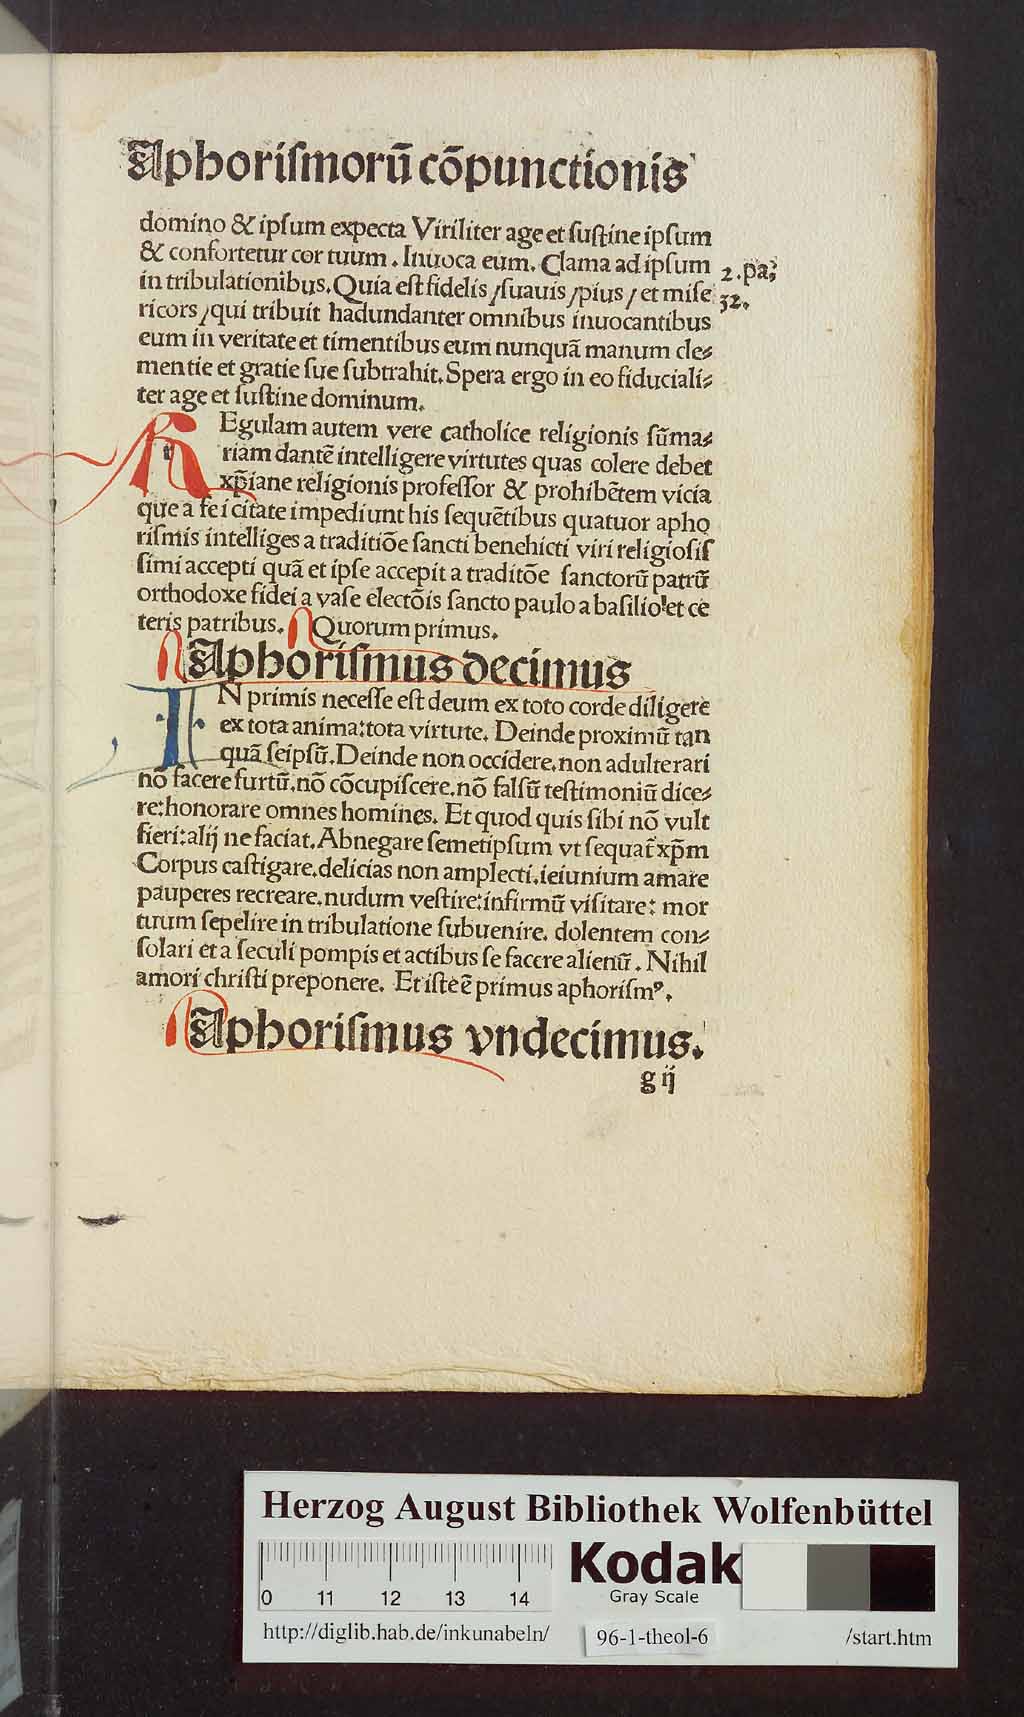 Aphoriſmorū cōpunctionis
domino & ipſum expecta Viriliter age et ſuſtine ipſum
& confortetur cor tuum . Inuoca eum. Clama ad ipſum
2 . pa;
in tribulationibus. Quia eſt fidelis / ſuauis / pius / et miſe
32.
ricors / qui tribuit hadundanter omnibus inuocantibus
eum in veritate et timentibus eum nunquā manum cle⸗
mentie et gratie ſue ſubtrahit. Spera ergo in eo fiduciali⸗
ter age et ſuſtine dominum.
REgulam autem vere catholice religionis ſūma⸗
riam dantē intelligere virtutes quas colere debet
xp̄iane religionis profeſſor & prohibētem vicia
que a feicitate impediunt his ſequētibus quatuor apho
riſmis intelliges a traditiōe ſancti benehicti viri religioſiſ
ſimi accepti quā et ipſe accepit a traditōe ſanctorū patrū
orthodoxe fidei a vaſe electōis ſancto paulo a baſilio et ce
teris patribus. Quorum primus.
Aphoriſmus decimus
IN primis neceſſe eſt deum ex toto corde diligere
ex tota anima: tota virtute. Deinde proximū tan
quā ſeipſū. Deinde non occidere. non adulterari
nō facere furtū. nō cōcupiſcere. nō falſū teſtimoniū dice⸗
re: honorare omnes homines. Et quod quis ſibi nō vult
fieri: alij ne faciat. Abnegare ſemetipſum vt ſequat̄ xp̄m
Corpus caſtigare. delicias non amplecti. ieiunium amare
pauperes recreare. nudum veſtire: infirmū viſitare: mor
tuum ſepelire in tribulatione ſubuenire. dolentem con⸗
ſolari et a ſeculi pompis et actibus ſe facere alienū . Nihil
amori chriſti preponere. Et iſte ē primus aphoriſmꝰ.
Aphoriſmus vndecimus.
g ij
Herzog August Bibliothek Wolfenbüttel
0 11 12 13 14
Kodak
Gray Scale
http://diglib.hab.de/inkunabeln/ 96-1-theol-6 /start.htm